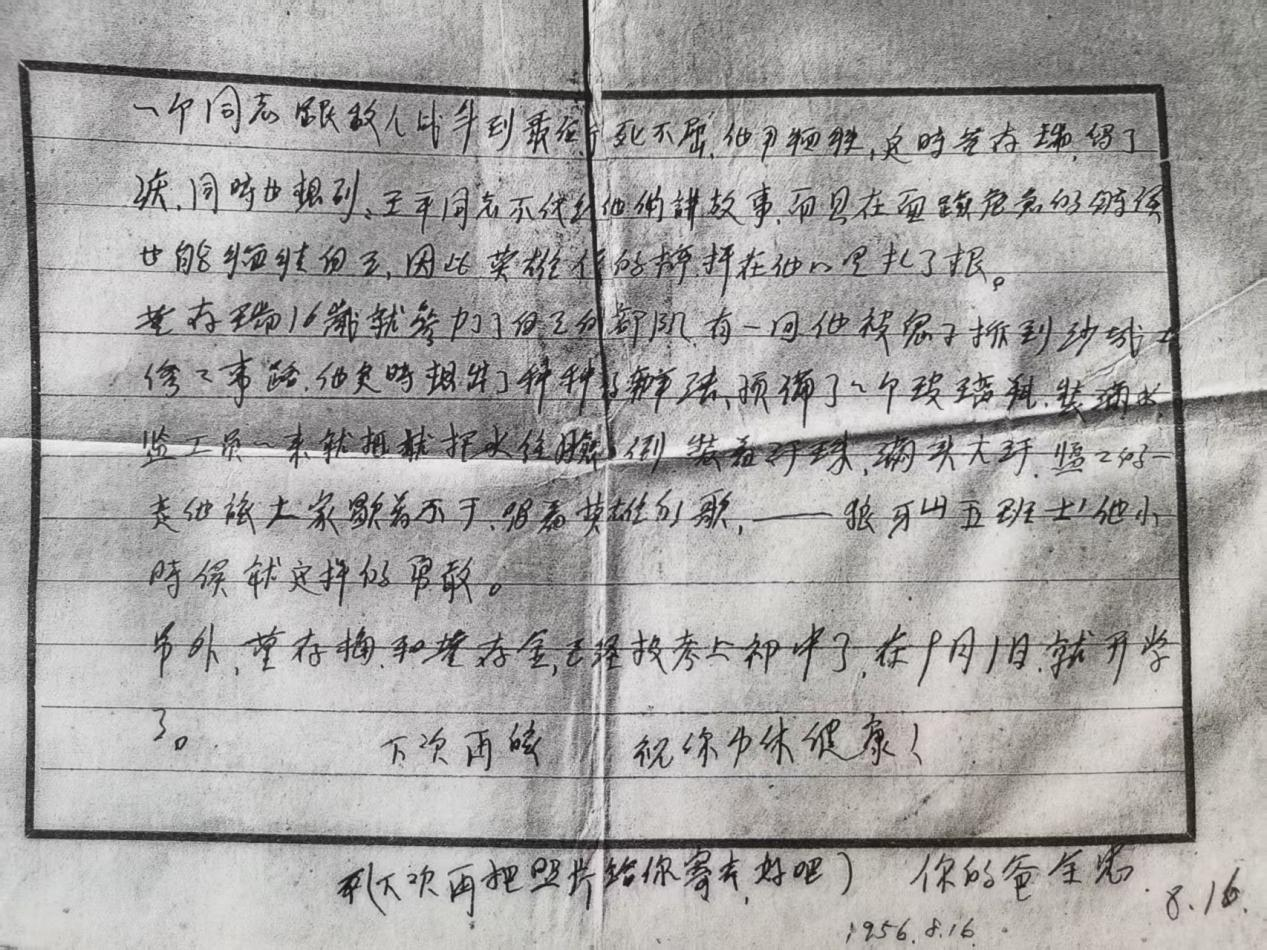 一个同志跟敌人战斗到最后宁死不屈,他为牺牲,这时董存瑞,得了
同时也想到:王平同志不但给他们讲故事,而且在面临危急的时候
也能牺牲自己,因此英雄性的榜样在他心里扎了根。
董存瑞16岁就参加了自己的部队,有一回他被鬼子抓到沙城
修工事路,他这时想出了种种的办法,预备了一个玻璃瓶,装满水,
监工员一来就把水往脸倒装着汗珠,满头大汗,监工的一
走他就大家歇着不干,唱着英雄的歌,——狼牙山五壮士!他小
时候就这样的勇敢。
另外,董存梅,和董存金,已经投考上初中了,在9月1日,就开学
了。 下次再谈 祝你身体健康!
(下次再把照片给你寄去,好吧) 你的爸全忠
8.16
1956.8.16